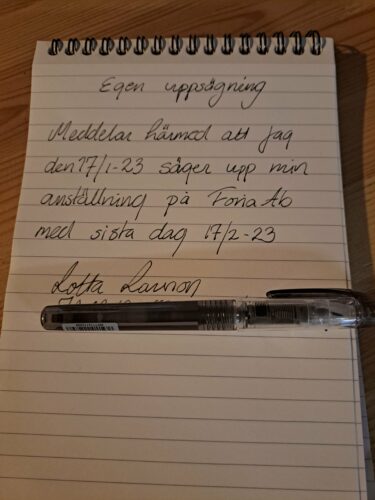 Egen uppsägning
Meddelar härmed att jag
den 17/1-23 säger upp min
anställning på Foria Ab
med sista dag 17/2-23
Lotta